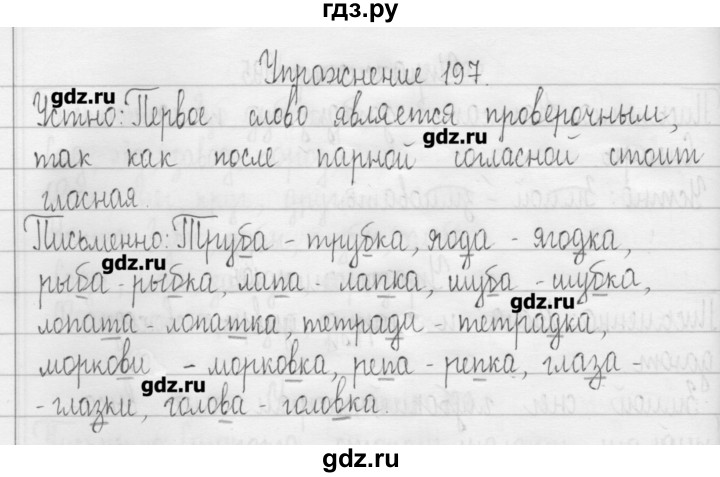 гдз.ру
Упражнение 197.
gdz.ru
Устно: Первое слово является проверочным,
gdz.ru
так как после парной согласной стоит
гласная.
Письменно: Труба - трубка, ягода - ягодка,
gdz.ru
рыба - рыбка, лапа - лапка, шуба - шубка,
gdz.ru
лопата - лопатка, тетрада - тетрадка,
моркови - морковка, репа - репка, глаза -
gdz.ru
- глазки, голова - головка.
gdz.ru